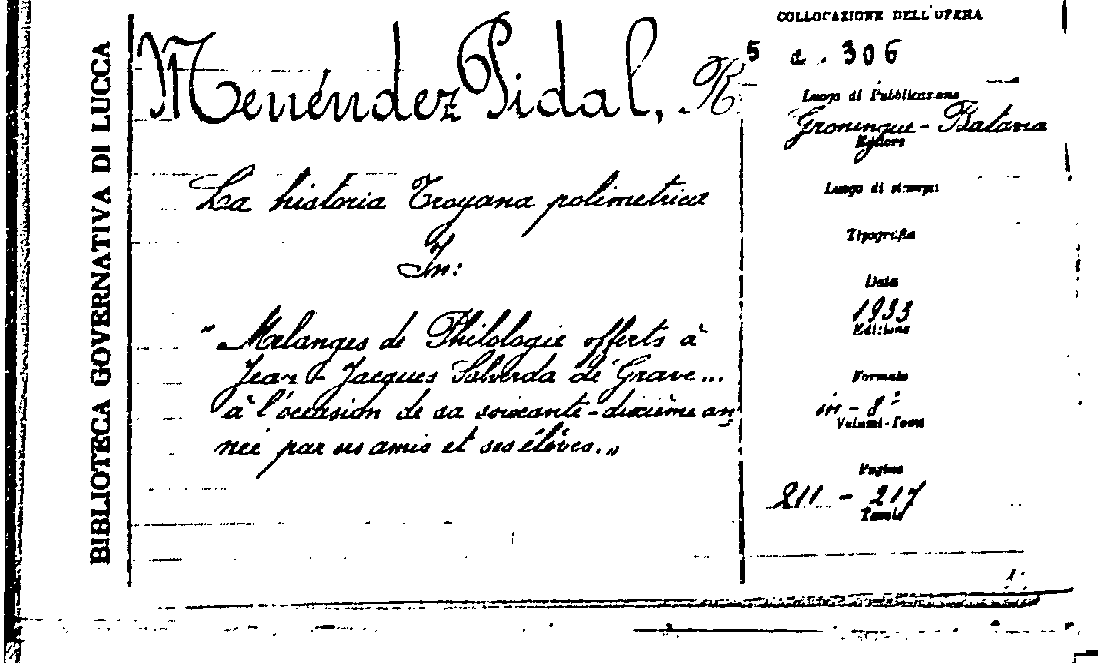 BIBLIOTECA GOVERNATIVA DI LUCCA
Menéndez Pidal, R
La historia Troyana polimetrica
In:
"Melanges de Philologie offerts à
Jean-Jacques Salverda de Grave...
à l'occasion de sa soixante-dixième an
née par ses amis et ses élèves."
COLLOCAZIONE DELL'OPERA
5 a. 306
Luogo di Pubblicazione
Groningue - Batavia
Editore
Luogo di stampa
Tipografia
Data
1933
Edizione
Formato
in - 8°
Volumi-Tomi
Pagine
211 - 217
Tavole